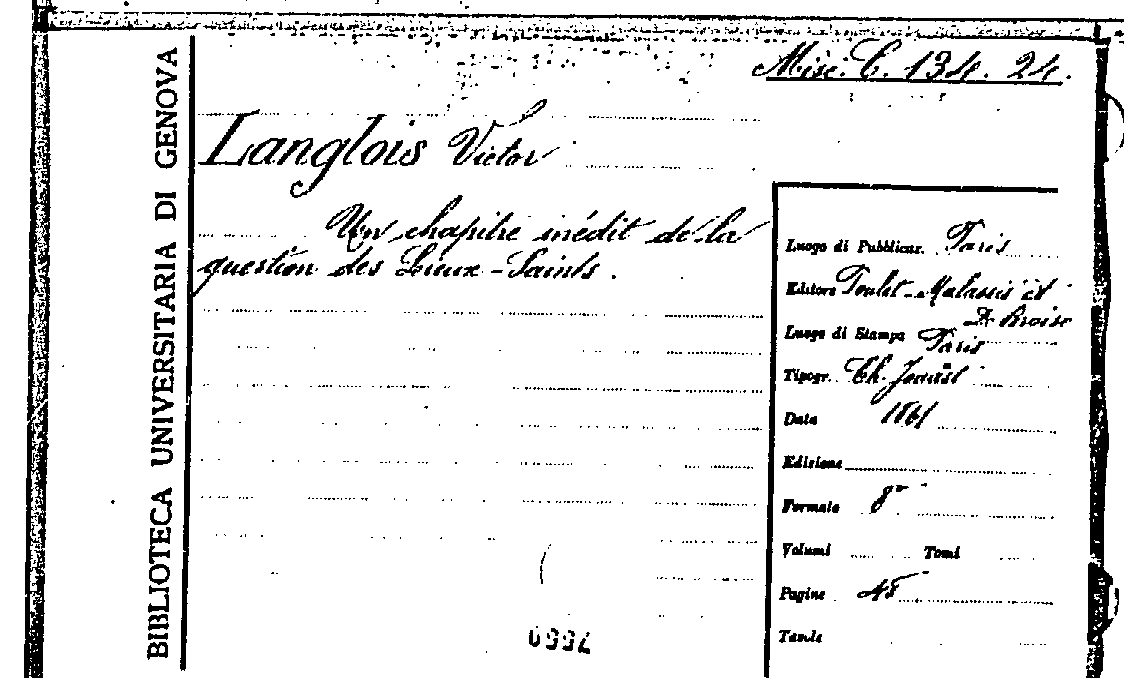 BIBLIOTECA UNIVERSITARIA DI GENOVA
Misc. C. 134. 24.
Langlois Victor
Un chapitre inédit de la
question des Lieux-Saints.
Luogo di Pubblicaz. Paris
Editore Poulet-Malassis et
De Broise
Luogo di Stampa Paris
Tipogr. Ch. Jouast
Data 1861
Edizione
Formato 8°
Volumi Tomi
Pagine
Tavole